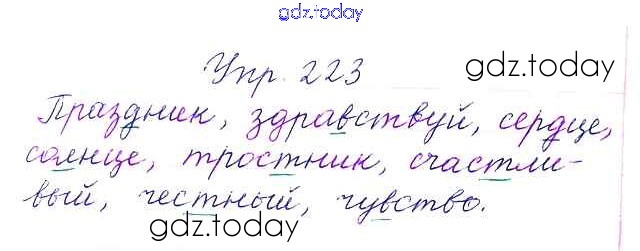 gdz.today
Упр. 223
gdz.today
Праздник, здравствуй, сердце,
солнце, тростник, счастли-
вый, честный, чувство.
gdz.today
gdz.today